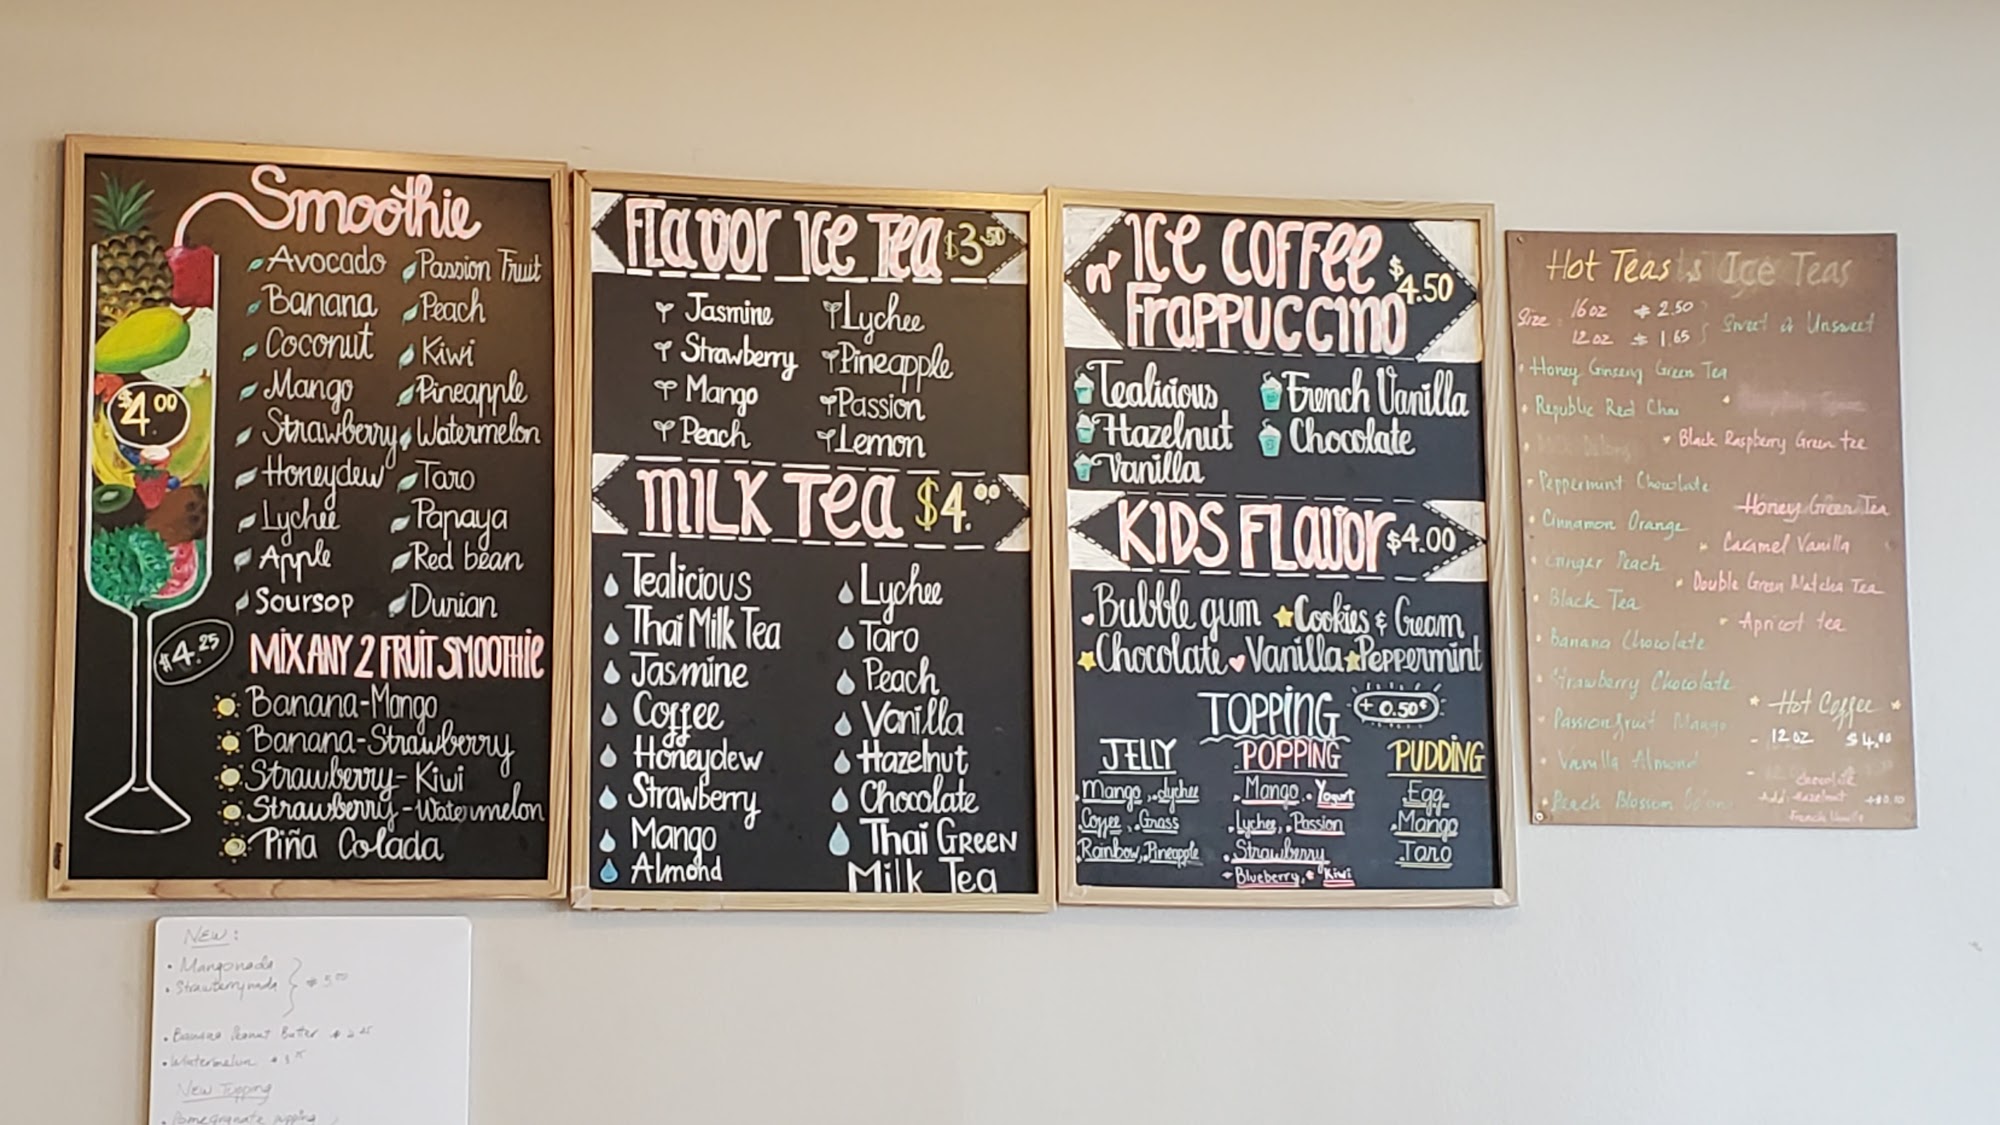 Smoothie
Avocado
Banana
Coconut
Mango
Strawberry
Honeydew
Lychee
Apple
Soursop
Passion Fruit
Peach
Kiwi
Pineapple
Watermelon
Taro
Papaya
Red bean
Durian
$4.00
$4.25
MIX ANY 2 FRUIT SMOOTHIE
Banana-Mango
Banana-Strawberry
Strawberry-Kiwi
Strawberry-Watermelon
Piña Colada
FLavor Ice Tea $3.50
Jasmine
Strawberry
Mango
Peach
Lychee
Pineapple
Passion
Lemon
MILK Tea $4.00
Tealicious
Thai Milk Tea
Jasmine
Coffee
Honeydew
Strawberry
Mango
Almond
Lychee
Taro
Peach
Vanilla
Hazelnut
Chocolate
Thai GREEN
Milk Tea
ICE COFFEE
n' FRAPPUCCINO
$4.50
Tealicious
Hazelnut
Vanilla
French Vanilla
Chocolate
KIDS FLavor $4.00
Bubble gum Cookies & Cream
Chocolate Vanilla Peppermint
TOPPING + 0.50¢
JELLY
Mango, Lychee
Coffee, Grass
Rainbow, Pineapple
POPPING
Mango, Yogurt
Lychee, Passion
Strawberry
Blueberry, Kiwi
PUDDING
Egg
Mango
Taro
Hot Teas Ice Teas
Size: 16 oz $ 2.50
12 oz $ 1.65
Sweet or Unsweet
Honey Ginseng Green Tea
Republic Red Chai
Peppermint Chocolate
Cinnamon Orange
Ginger Peach
Black Tea
Banana Chocolate
Strawberry Chocolate
Passionfruit Mango
Vanilla Almond
Peach Blossom
Black Raspberry Green tea
Honey Green Tea
Caramel Vanilla
Double Green Matcha Tea
Apricot tea
Hot Coffee
- 12 oz $4.00
chocolate
Add: Hazelnut
French Vanilla
NEW:
Mangonada
Strawberrynada
$5.00
Banana Peanut Butter
Watermelon
New Topping
Pomegranate popping